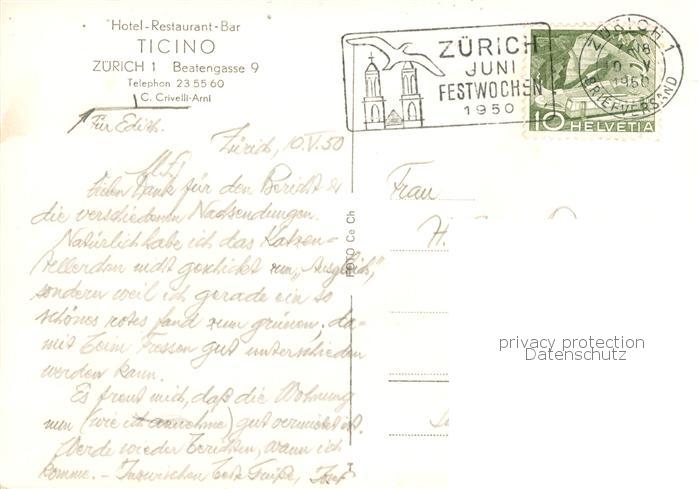 Hotel-Restaurant-Bar
TICINO
ZÜRICH 1 Beatengasse 9
Telephon 23 55 60
C. Crivelli-Arni
Für Edith.
Zürich, 10.V.50
Vielen Dank für den Bericht &
die verschiedenen Nachsendungen.
Natürlich habe ich das Katzen-
tellerchen nicht geschickt zum „Ausgleich",
sondern weil ich gerade ein so
schönes rotes fand zum grünen, da-
mit beim Fressen gut unterschieden
werden kann.
Es freut mich, daß die Wohnung
nun (wie ich annehme) gut vermietet ist.
Werde wieder berichten, wann ich
komme. – Inzwischen beste Grüße, Josef
FOTO Ce Ch
ZÜRICH
JUNI
FESTWOCHEN
1950
ZÜRICH 1
1950
BRIEFVERSAND
10 HELVETIA
Frau
H.
privacy protection
Datenschutz